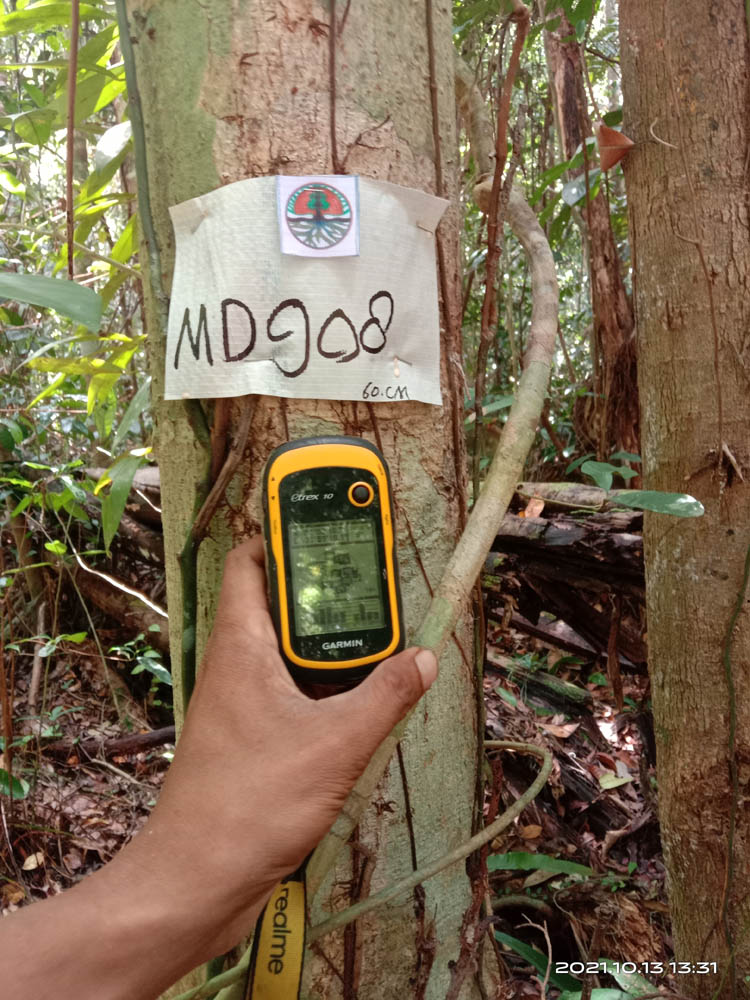 MD908
60.CM
etrex 10
GARMIN
realme
2021.10.13 13:31